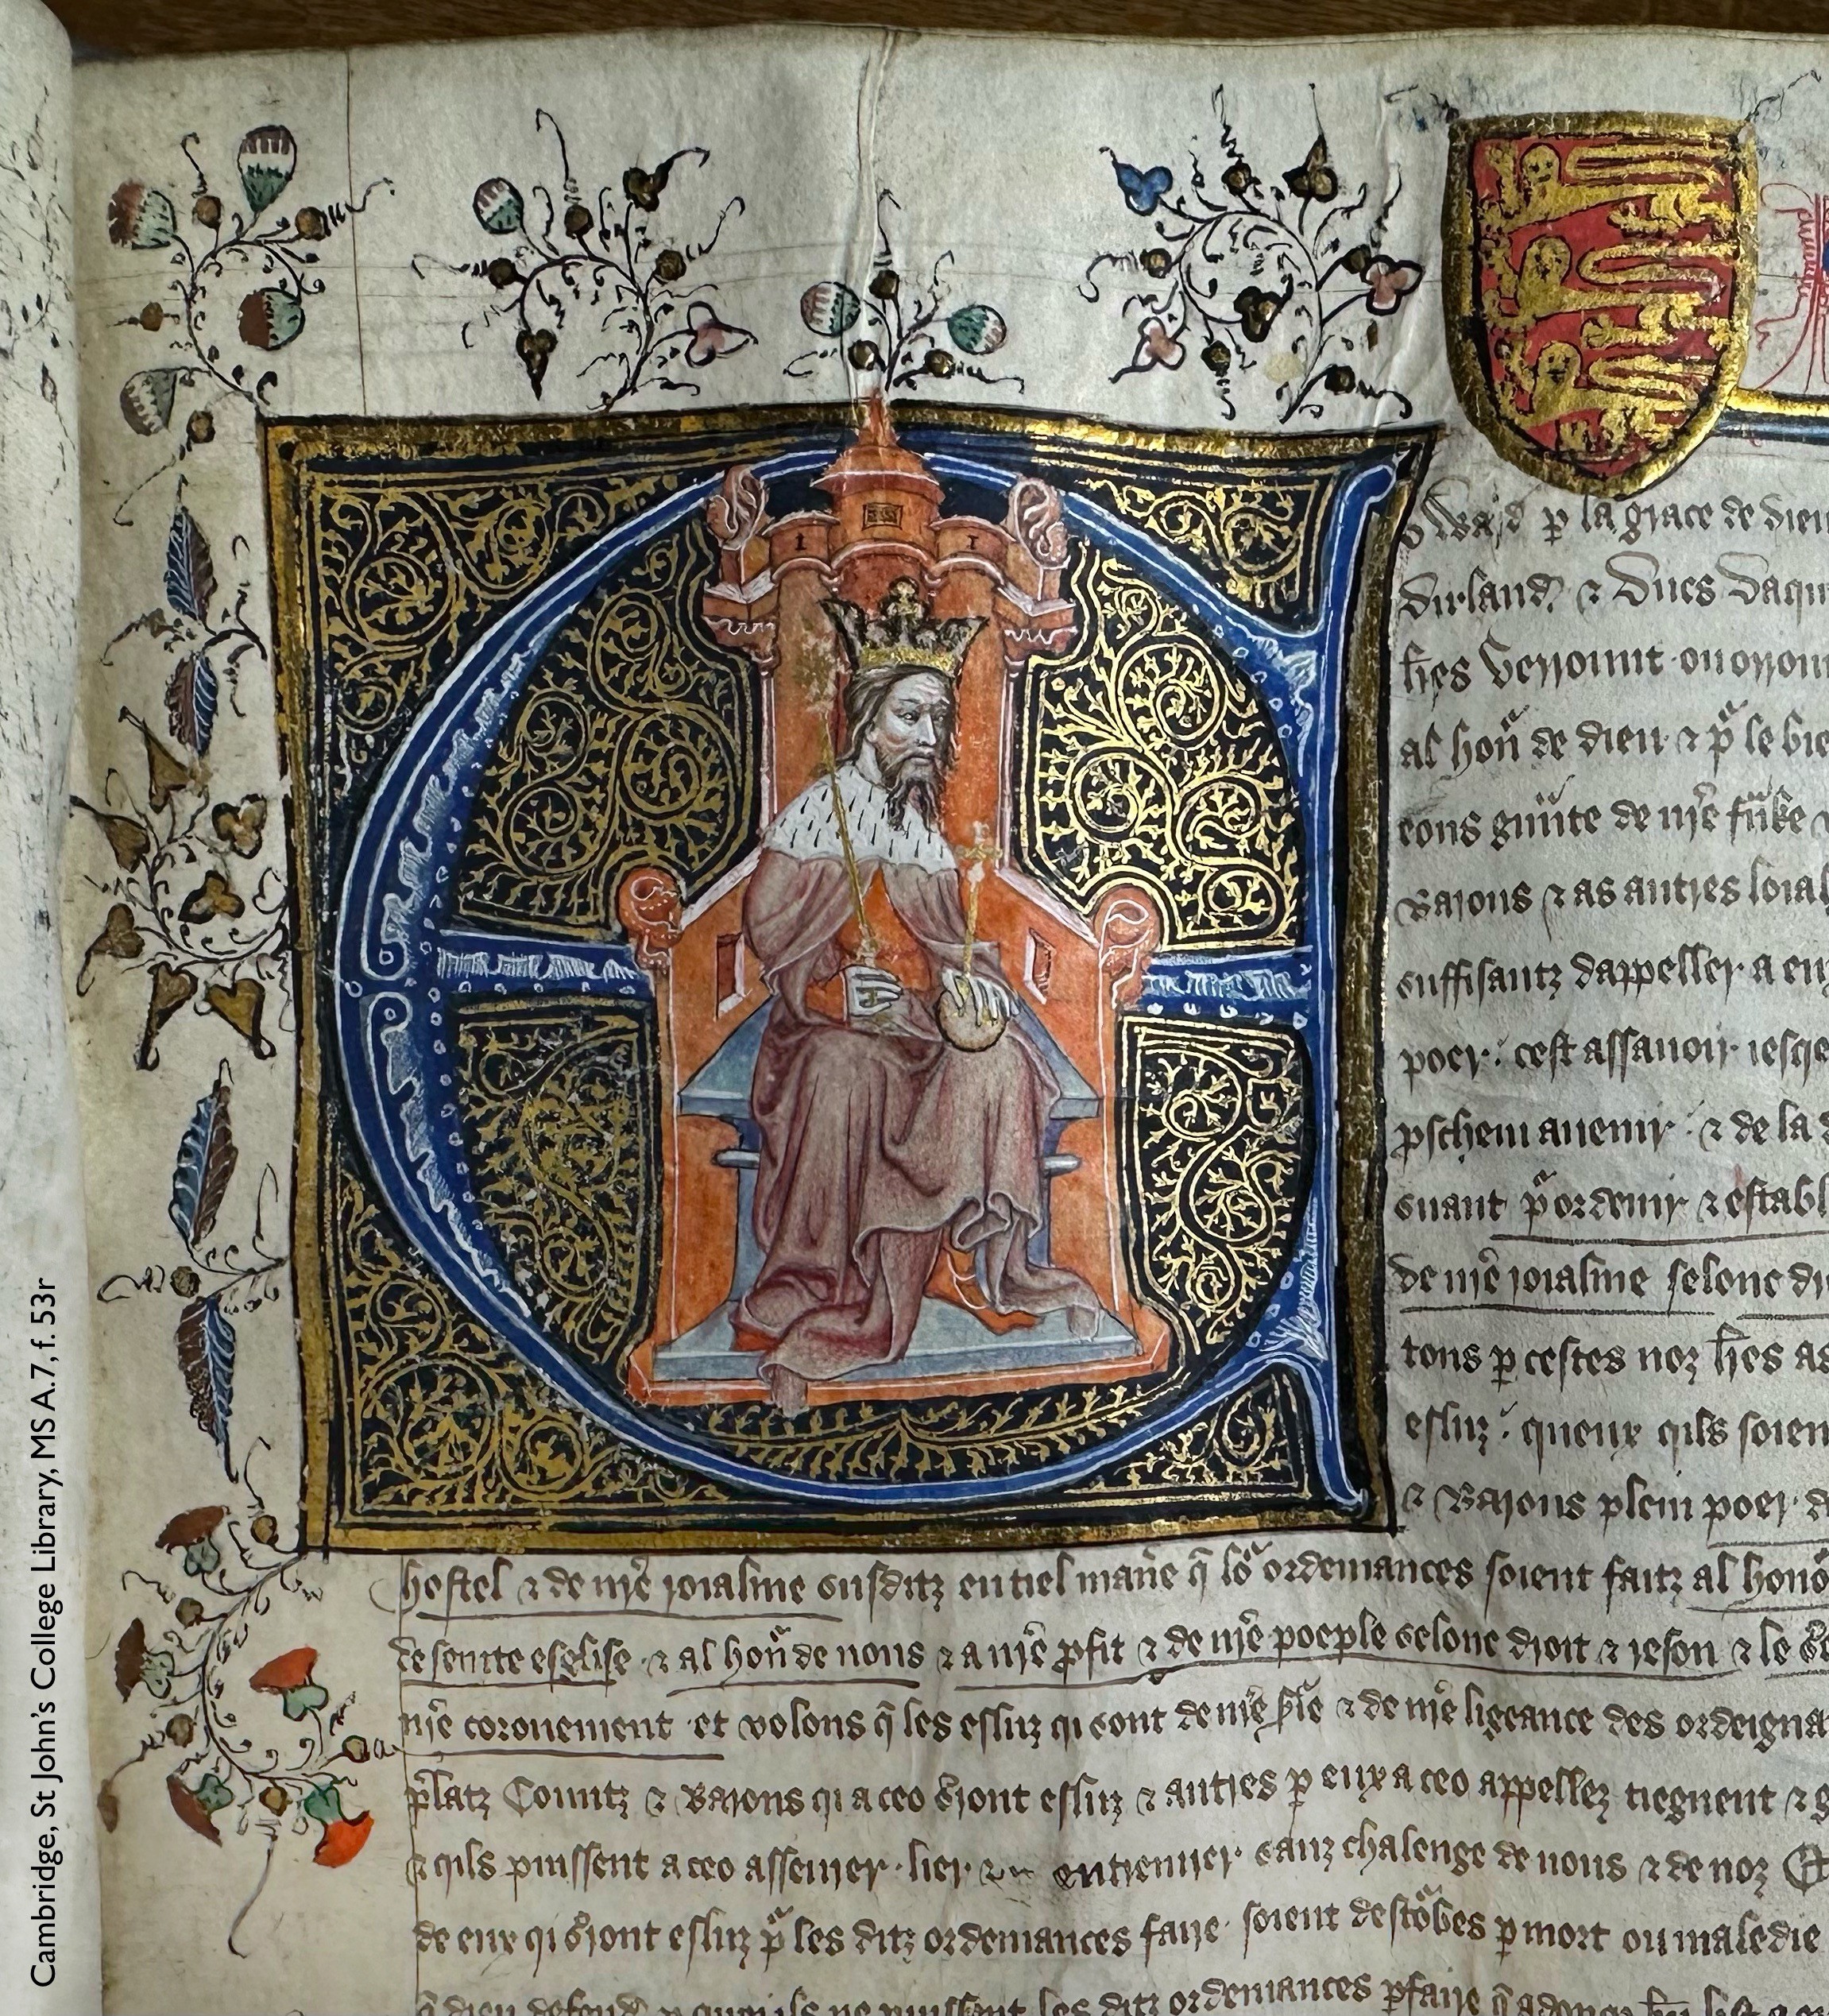 Edward p la grace de dieu
Dirland ⁊ Ducs Daqui
lres verrount ou orrount
al honr de dieu ⁊ pr le bie
eons gnte de nre
Barons ⁊ as autres loial
suffisantz dappeller a eux
poer cest assauoir iesqe
pschein auenir ⁊ de la
suant pr ordenir ⁊ establ
de nre roialme selonc dr
tons p cestes noz lres as
esluz queux qils soien
⁊ Barons plein poer de
hostel ⁊ de nre roialme susditz en tiel mane q lor ordenances soient faitz al hono
de seinte esglise ⁊ al honr de nous ⁊ a nre pfit ⁊ de nre poeple selonc droit ⁊ reson ⁊ le se
nre coronement et volons q les esluz qi sont de nre ⁊ de nre ligeance des ordeigna
platz Countz ⁊ Barons qi a ceo sront esluz ⁊ autres p eux a ceo appellez tiegnent ⁊ g
⁊ qils puissent a ceo asseurer lier ⁊ entreiurer sanz chalenge de nous ⁊ de noz
de eux qi sront esluz pr les ditz ordenances faire soient destorbes p mort ou maledie
q dieu defend p quei ils ne puissent les ditz ordenances pfaire q adonqs
Cambridge, St John's College Library, MS A.7, f. 53r